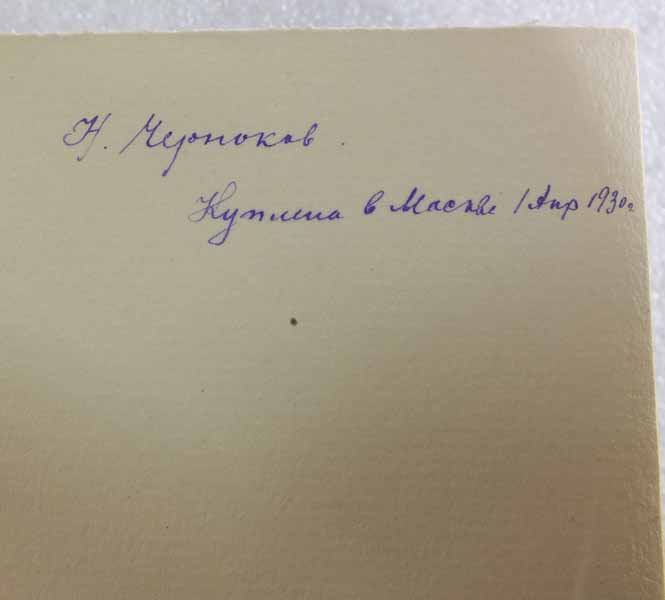 Н. Черноков.
Куплена в Москве 1 Апр 1930 г